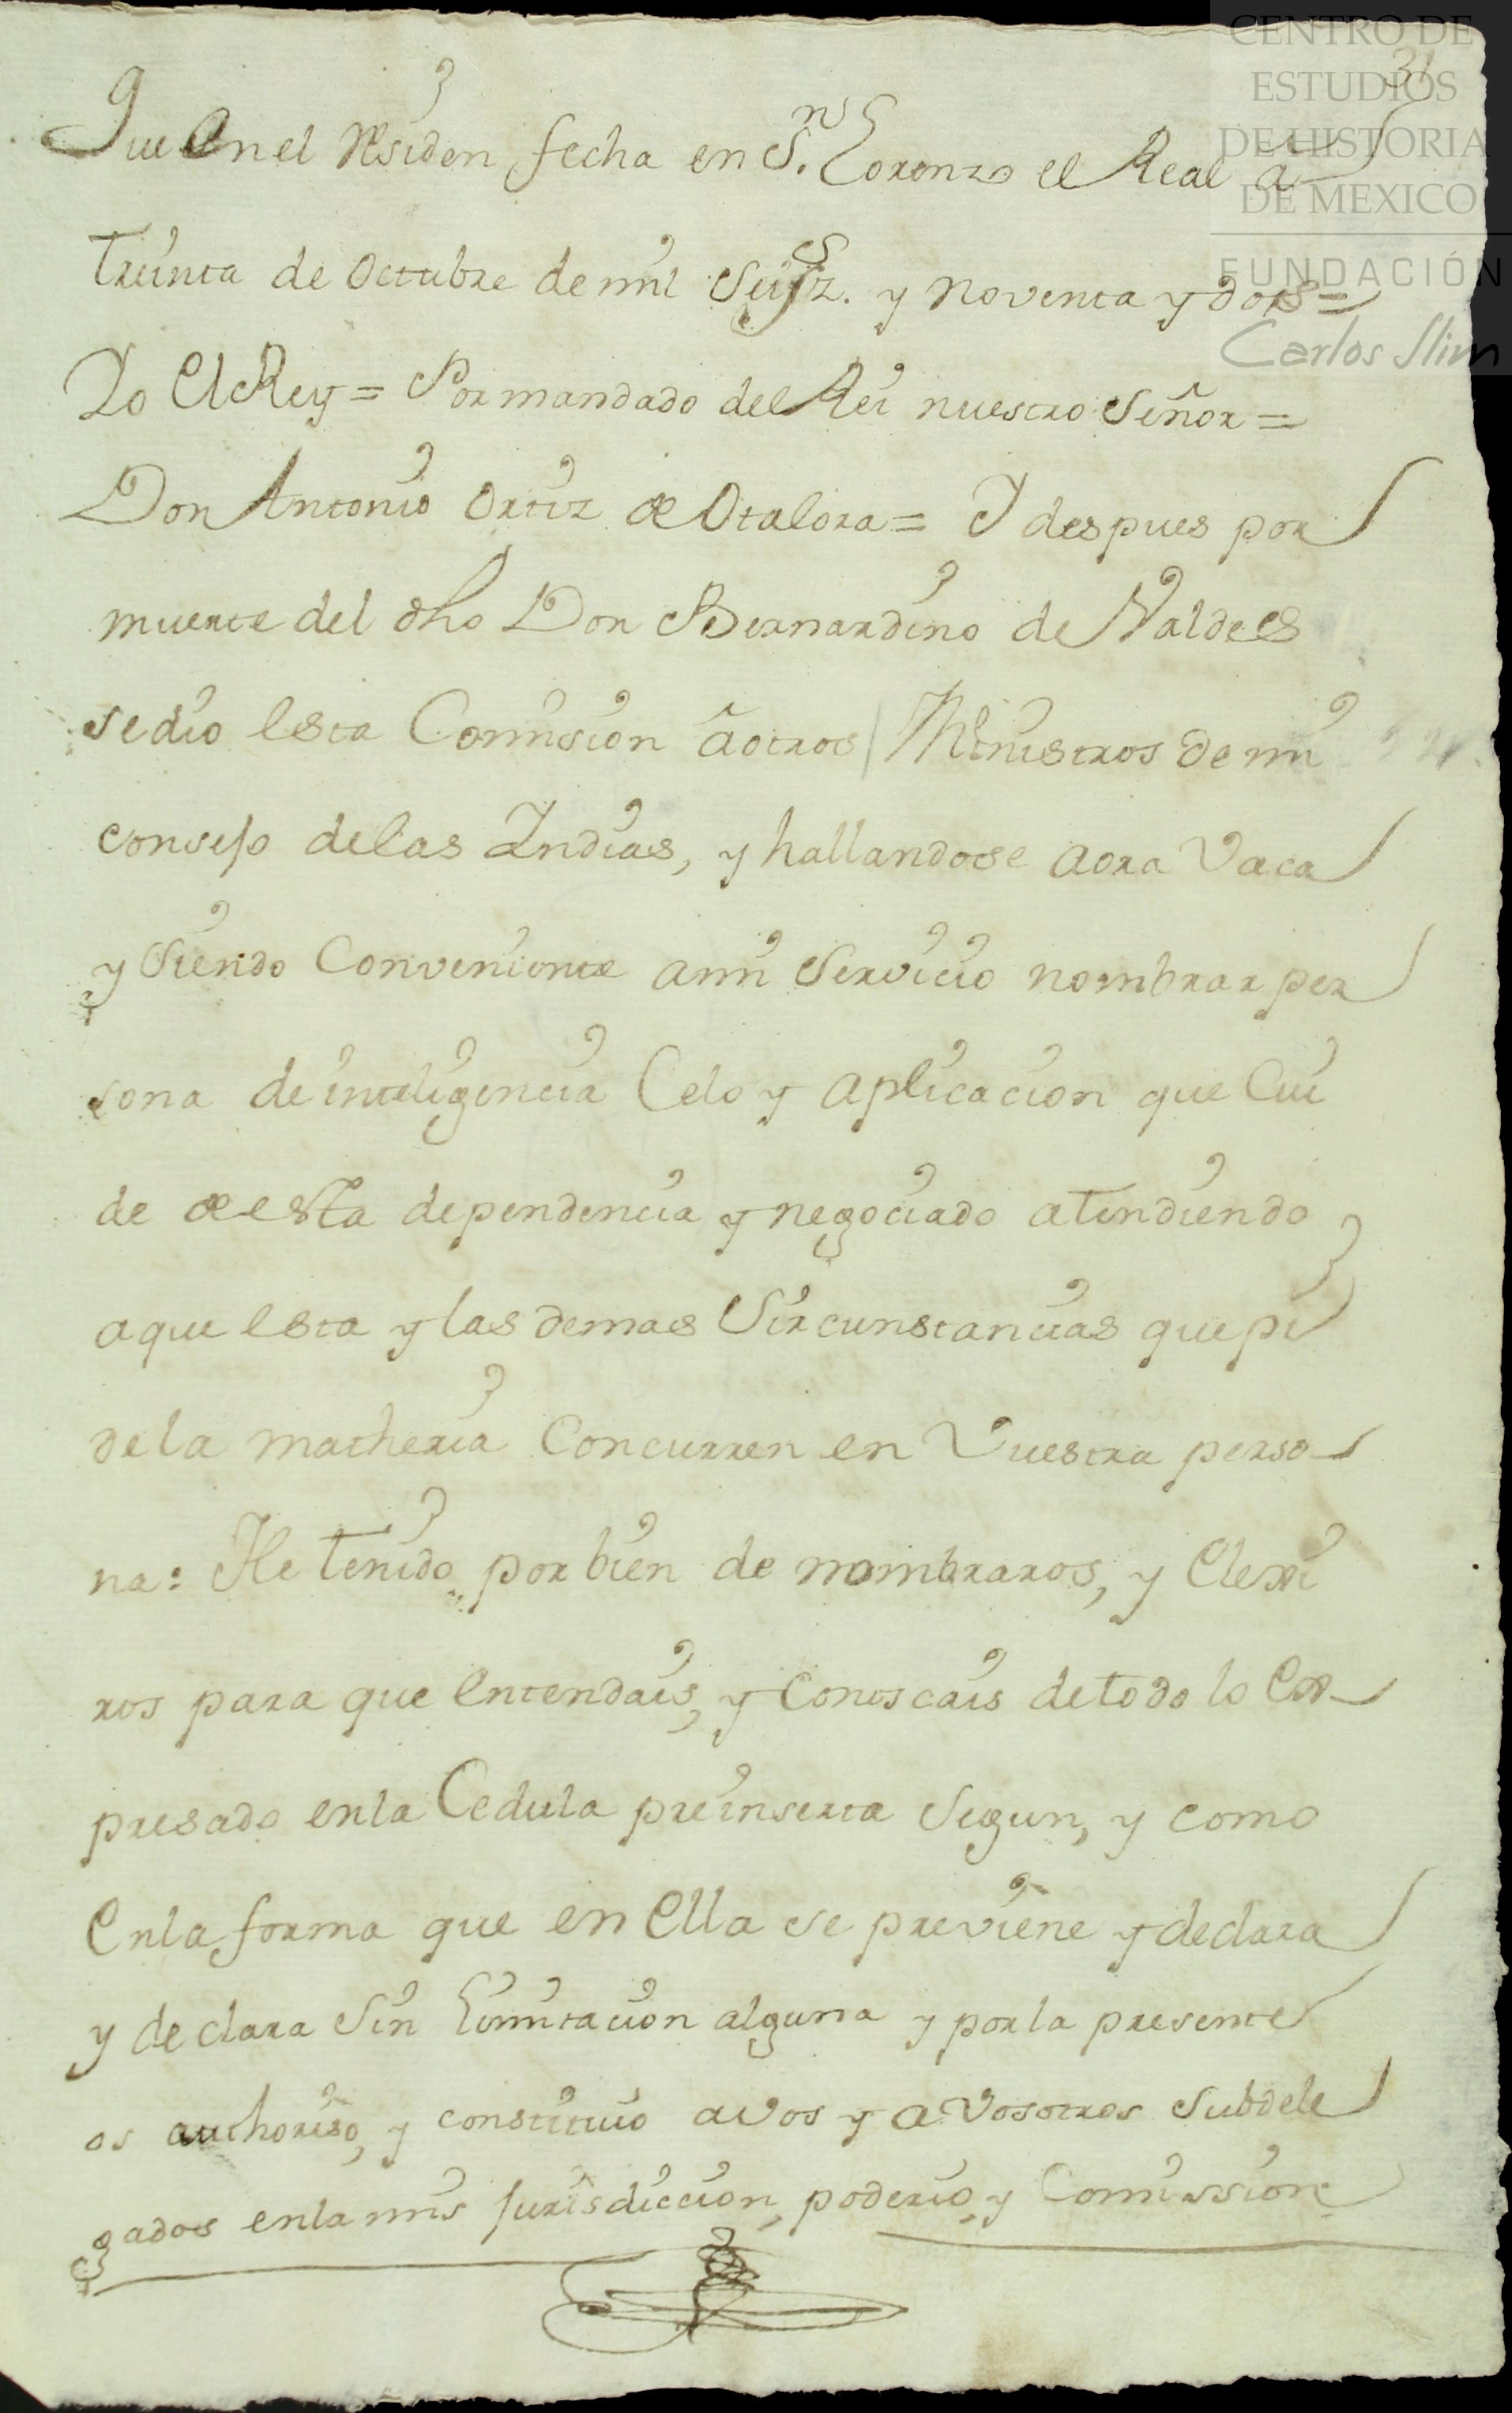 CENTRO DE
ESTUDIOS
DE HISTORIA
DE MEXICO
FUNDACIÓN
Carlos Slim
31
Que en el Residen, fecha en S.n Lorenzo el Real â
Treinta de Octubre de mil y noventa y dos =
Yo El Rey = Por mandado del Rei nuestro Señor =
Don Antonio Ortiz de Otalora = Y despues por
muerte del dho Don Bernardino de Valdes
se dio esta Comision â otros Ministros de mi
consejo de las Indias, y hallandose aora Vaca
y Siendo Conveniente a mi Servicio nombrar per
sona de inteligencia Celo y aplicacion que Cui
de de esta dependencia y negociado atendiendo
a que esta y las demas Sircunstancias que pi
de la matheria Concurren en Vuestra perso
na: He tenido por bien de nombraros, y Elexi
ros para que entendais, y Conoscais de todo lo Ex
presado en la Cedula preinserta Segun, y como
En la forma que en Ella se previene y declara
y declara Sin limitacion alguna y por la presente
os authoriso, y constituio a vos y a Vosotros Subdele
gados en la mis Jurisdiccion, poderio, y Comission